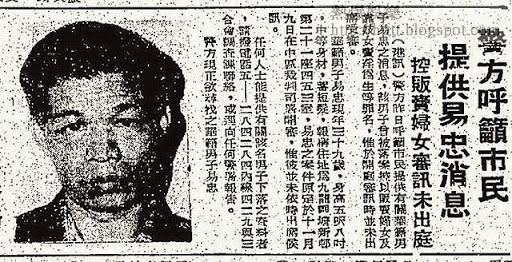 警方呼籲市民
提供易忠消息
控販賣婦女審訊未出庭
警方昨日呼籲市民提供有關華籍男
子易忠之消息，該男子曾被落案控以販賣婦女及
妓女賣淫為生等罪名，惟於開庭審訊時並未出
席應審。
華籍男子易忠現年三十九歲，身高五呎八吋
，中等身材，蓄短髮，報稱住址為九龍新邨
第二十一座四五三室。易忠之案件原定於十一月
九日在中區裁判司署開審，惟彼並未依時出席候
訊。
任何人士能提供有關該名男子下落之資料者
，請撥電話五—二八四二八四內線四二九與三
合會調查課聯絡，或逕向任何警署報告。
警方現正欲尋找之華籍男子易忠